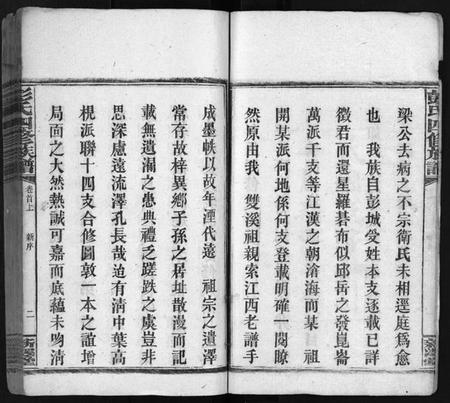 彭氏四修族譜
梁公去病之不宗衛氏未相逕庭爲愈
也 我族自彭城受姓本支逐載已詳
徵君而還星羅碁布似邱岳之發崑崙
萬派千支等江漢之朝滄海而某 祖
開某派何地係何支登載明確一閱瞭
然原由我 雙溪祖親索江西老譜手
成墨帙以故年湮代遠 祖宗之遺澤
當存故梓異鄉子孫之居址散漫而記
載無遺漏之患典禮乏蹉跌之虞豈非
思深慮遠流澤孔長哉迨有清中葉高
梘派聯十四支合修圖敦一本之誼增
局面之大然熱誠可嘉而底蘊未吻清
彭氏四修族譜
卷首上
新序
二